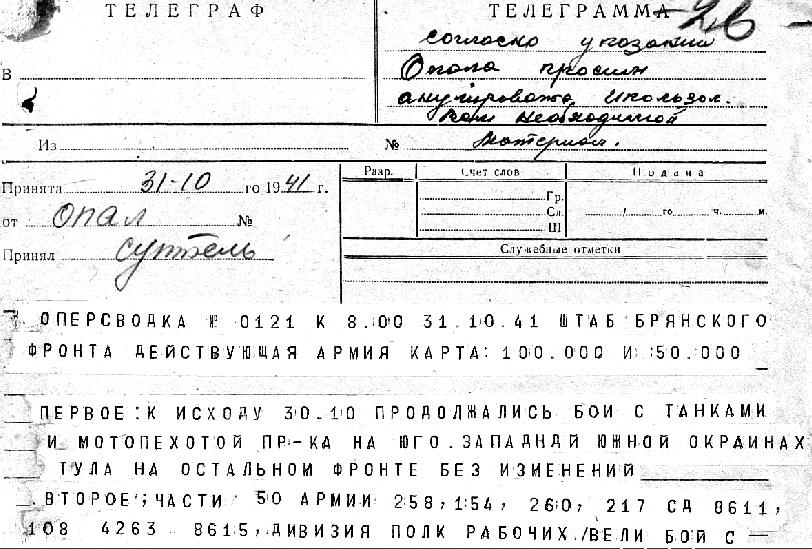 ТЕЛЕГРАФ
ТЕЛЕГРАММА
26
согласно указании
Опала просим
анулировать
необходимой
материал.
В
Из №
Принята 31-10 го 1941 г.
от ОПАЛ №
Принял суттель
Разр. Счет слов Подана
Гр.
Сл. го ч. м.
Ш
Служебные отметки
ОПЕРСВОДКА № 0121 К 8.00 31.10.41 ШТАБ БРЯНСКОГО
ФРОНТА ДЕЙСТВУЮЩАЯ АРМИЯ КАРТА: 100.000 И :50.000
ПЕРВОЕ:К ИСХОДУ 30.10 ПРОДОЛЖАЛИСЬ БОИ С ТАНКАМИ
И МОТОПЕХОТОЙ ПР-КА НА ЮГО.ЗАПАДНДЙ ЮЖНОЙ ОКРАИНАХ
ТУЛА НА ОСТАЛЬНОМ ФРОНТЕ БЕЗ ИЗИЕНЕНИЙ
ВТОРОЕ;ЧАСТИ 50 АРМИИ 258,154, 260, 217 СД 8611,
108 4263 8615,ДИВИЗИЯ ПОЛК РАБОЧИХ/ВЕЛИ БОЙ С —